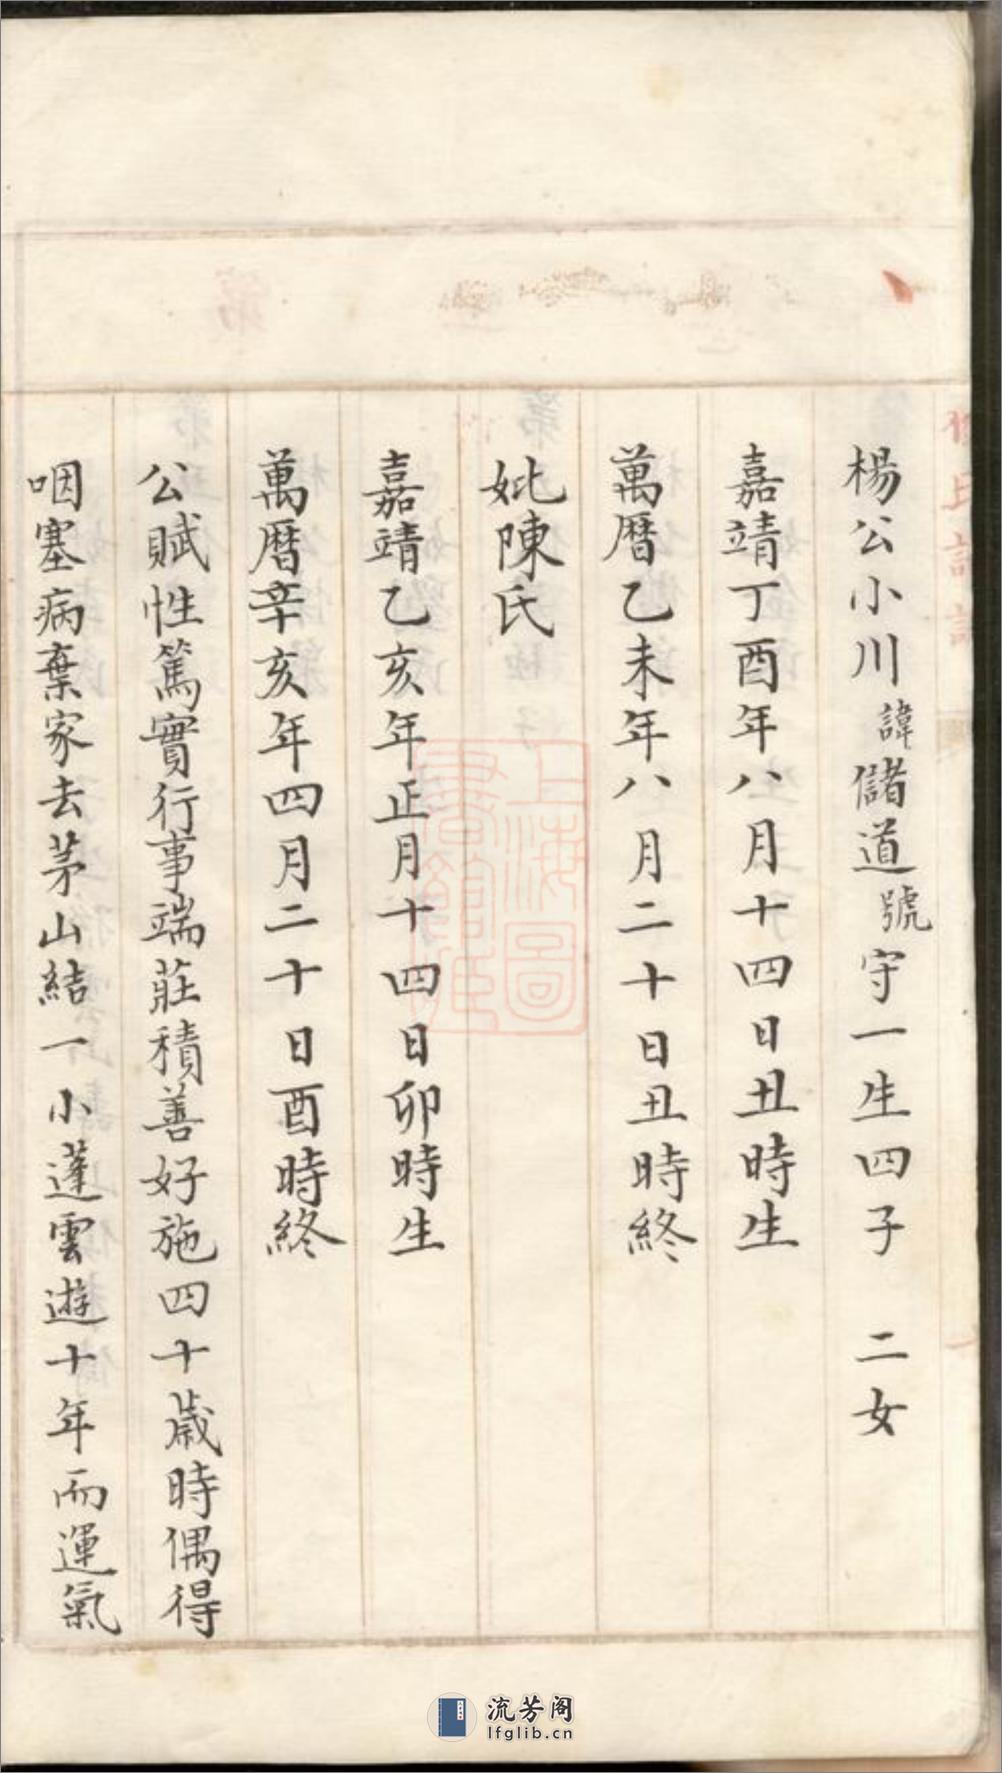 楊公小川諱儲道號守一生四子 二女
嘉靖丁酉年八月十四日丑時生
萬曆乙未年八月二十日丑時終
妣陳氏
嘉靖乙亥年正月十四日卯時生
萬曆辛亥年四月二十日酉時終
公賦性篤實行事端莊積善好施四十歲時偶得
咽塞病棄家去茅山結一小蓬雲遊十年而運氣
上海圖
書館藏
流芳阁
lfglib.cn